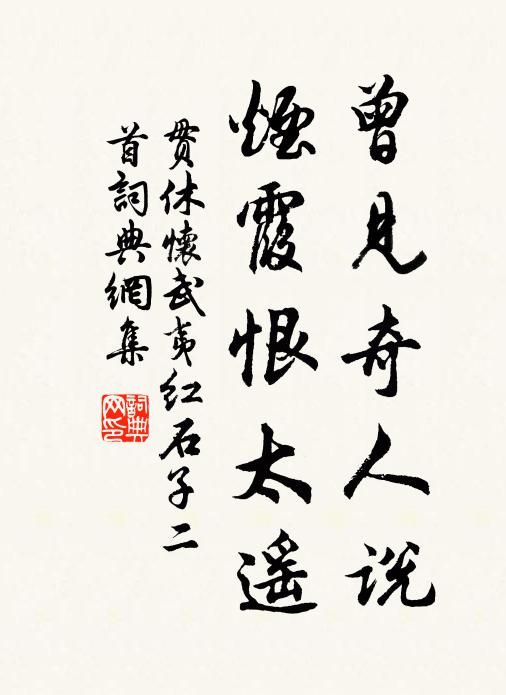 曾見奇人説
煙霞恨太遥
貫休懷武夷紅石子二
首詞典網集
詞典
网印